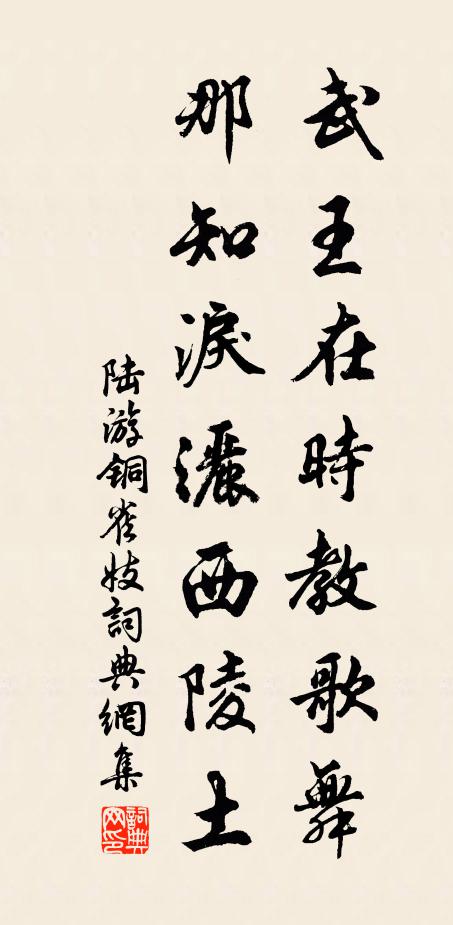 武王在時教歌舞
那知淚灑西陵土
陆游铜雀妓詞典網集
詞典網印